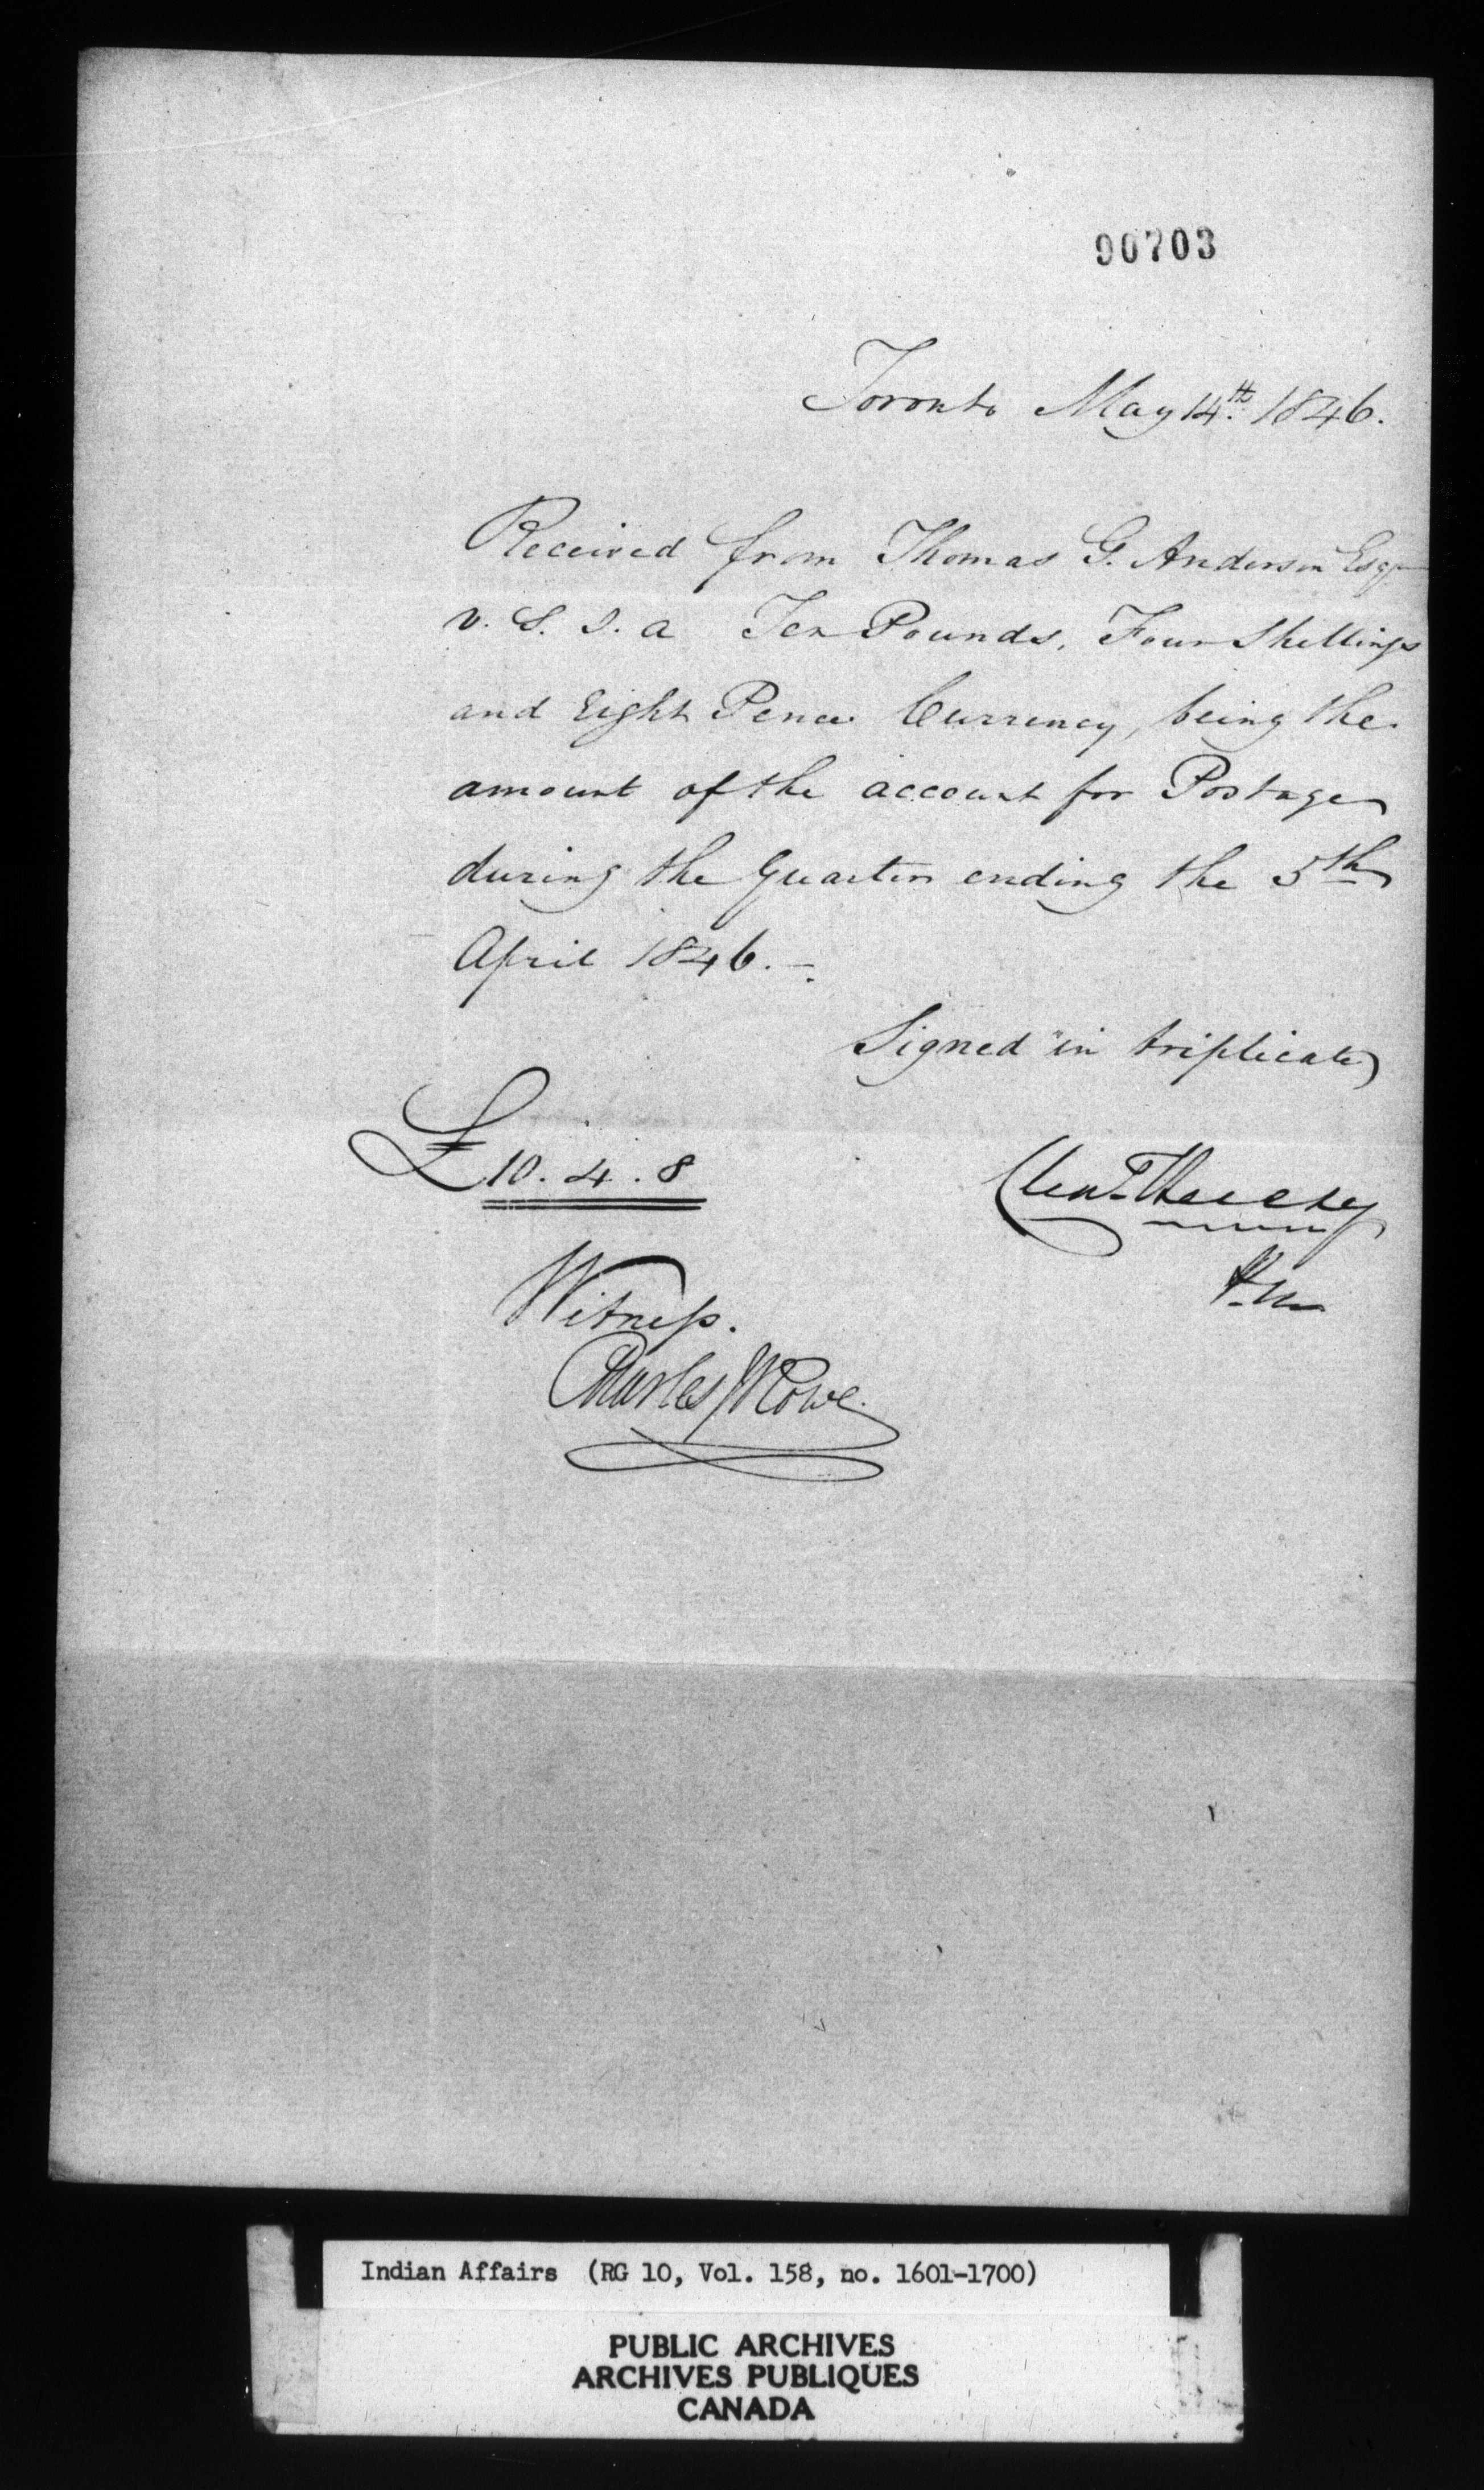 90703
Toronto May 14th. 1846.
Received from Thomas G. Anderson Esqr
V. S. I. A Ten Pounds, Four Shillings
and Eight Pence Currency, being the
amount of the account for Postage
during the Quarter ending the 5th
April 1846.-
Signed in triplicate
£10.4.8
P.M
Witness.
Charles
Indian Affairs (RG 10, Vol. 158, no. 1601-1700)
PUBLIC ARCHIVES
ARCHIVES PUBLIQUES
CANADA